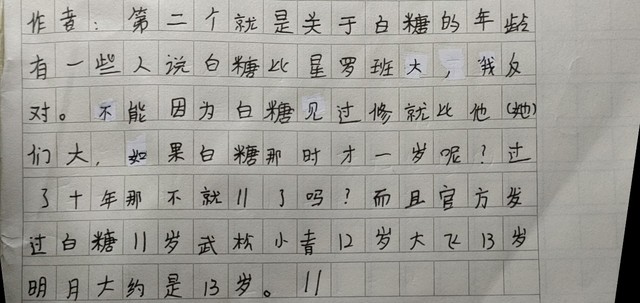 作者：第二个就是关于白糖的年龄
有一些人说白糖比星罗班大，我反
对。不能因为白糖见过修就比他(她)
们大，如果白糖那时才一岁呢？过
了十年那不就11了吗？而且官方发
过白糖11岁武松小青12岁大飞13岁
明月大约是13岁。11